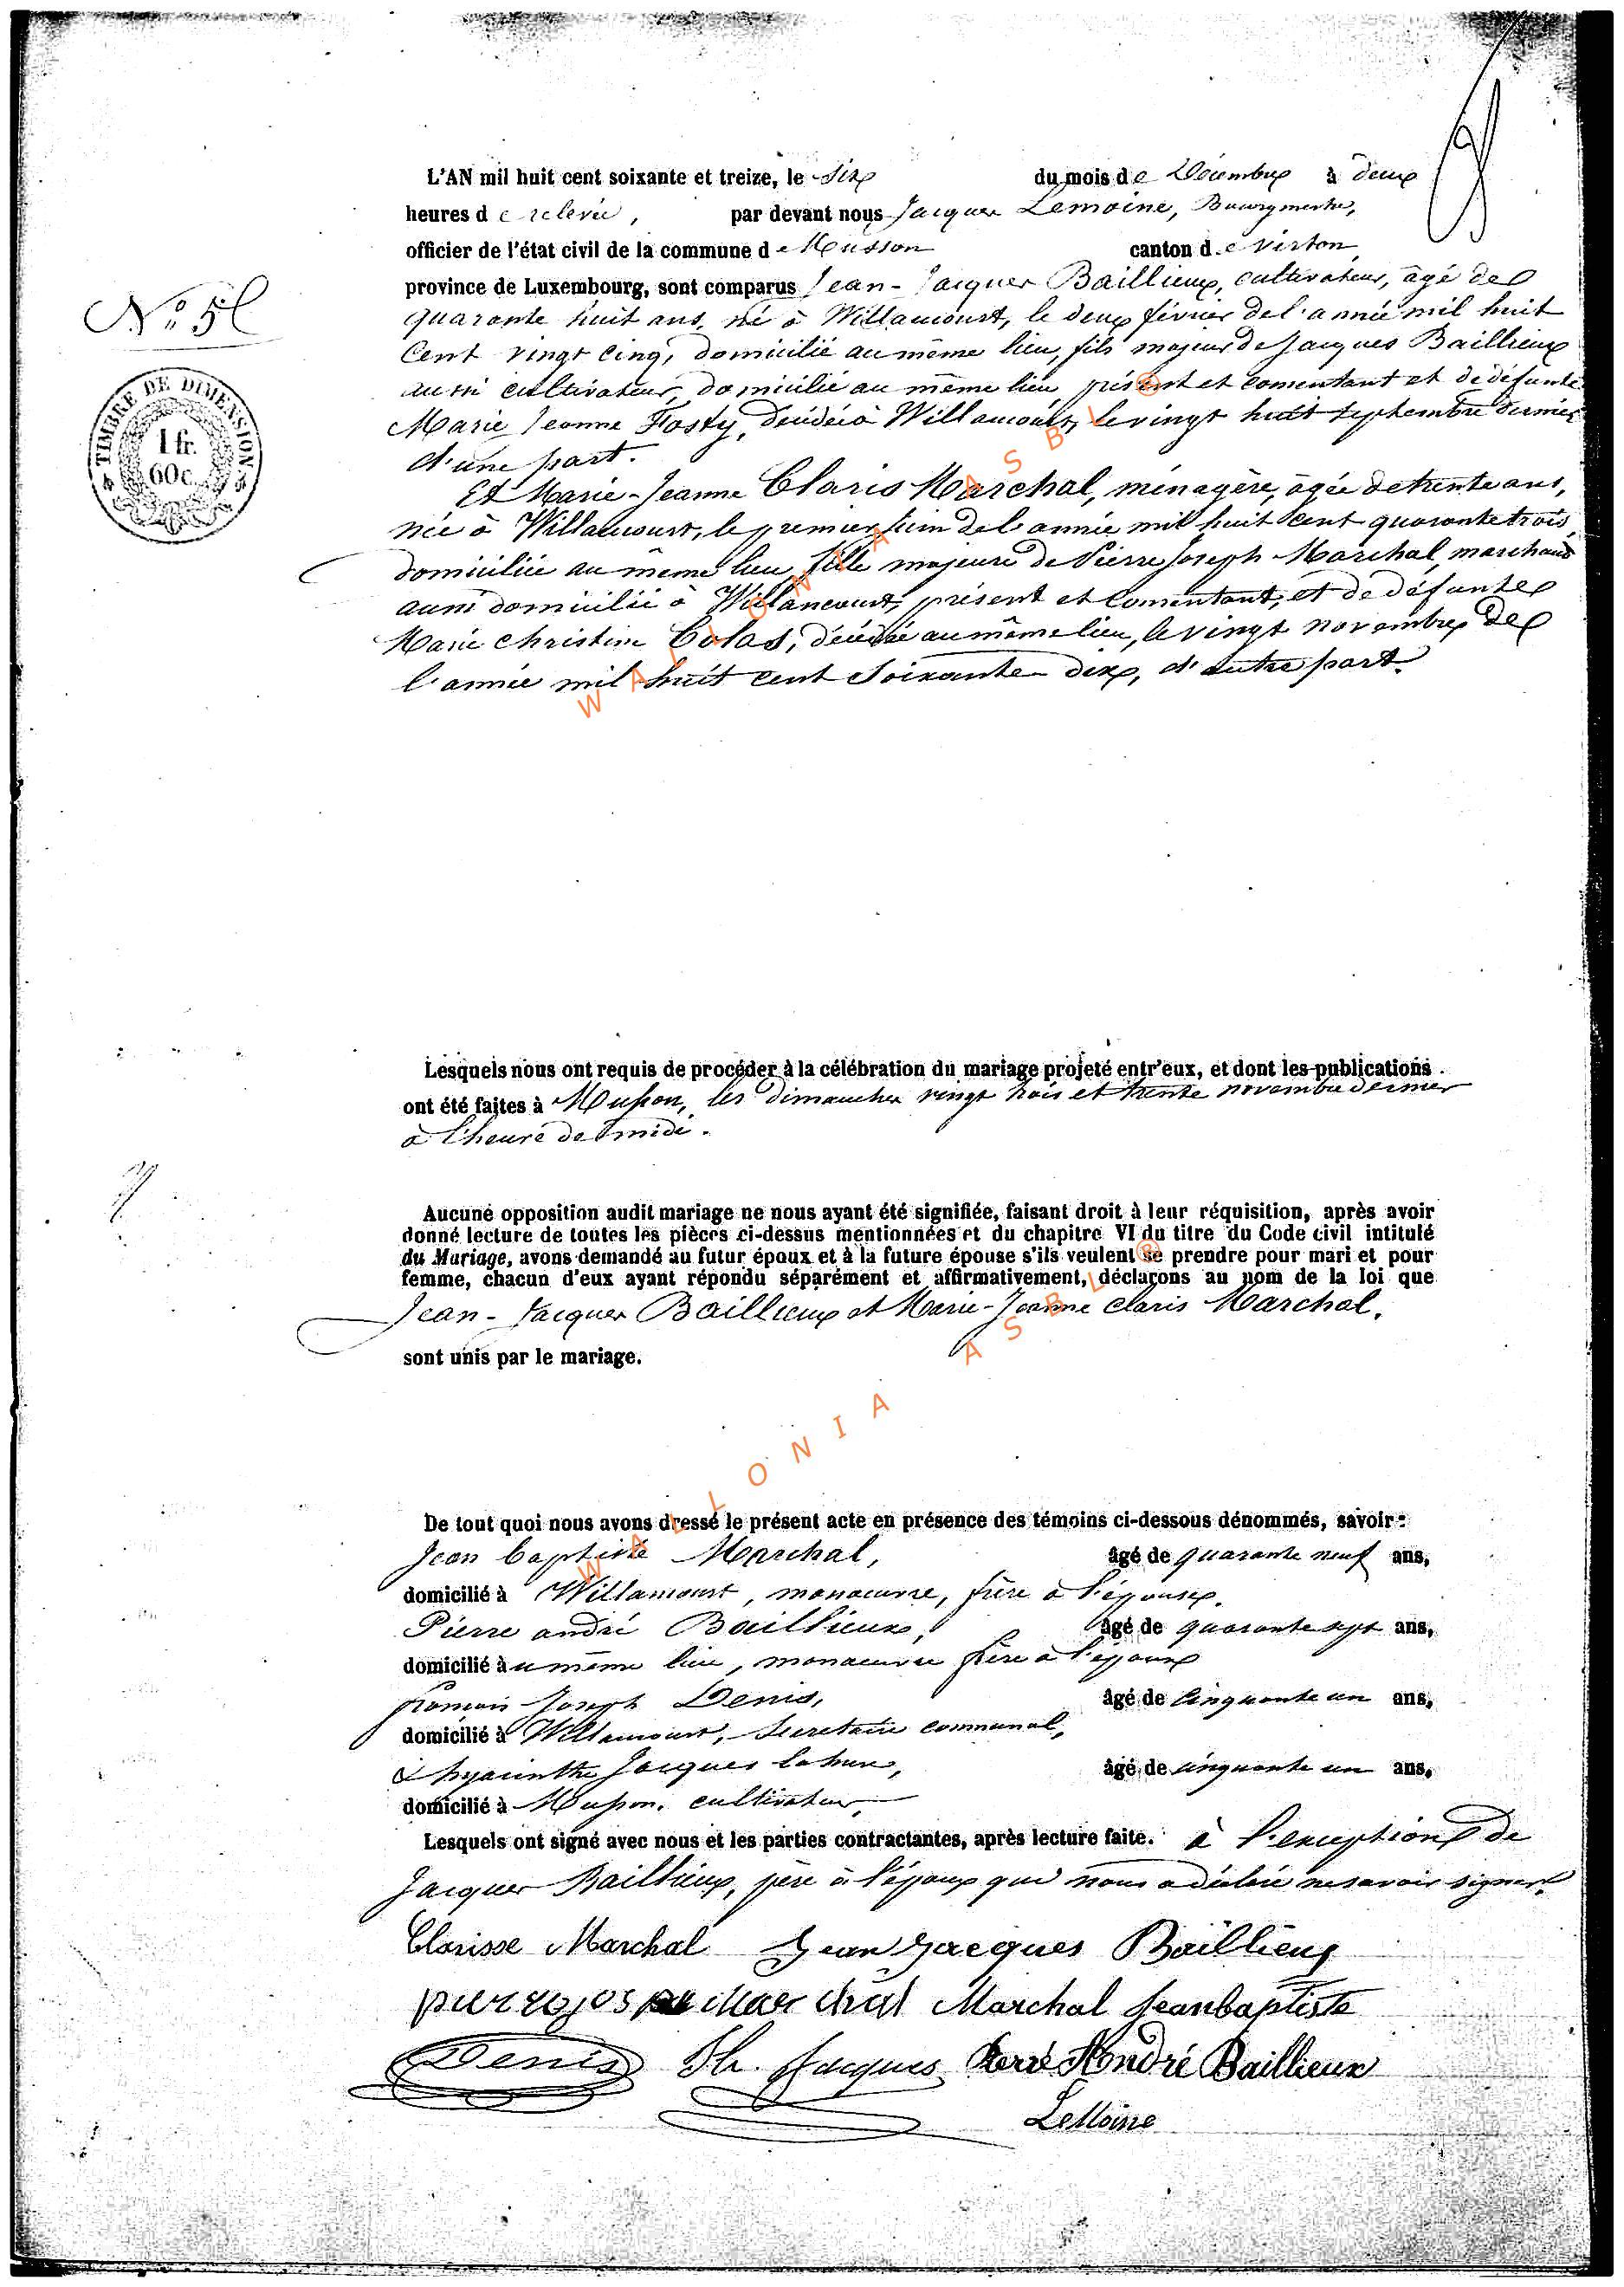 L'AN mil huit cent soixante et treize, le six du mois de Décembre à deux
heures de relevée, par devant nous Jacques Lemoine, Bourgmestre,
officier de l'état civil de la commune de Musson canton de Virton
province de Luxembourg, sont comparus Jean-Jacques Baillieux, cultivateur, âgé de
quarante huit ans, né à Willancourt, le deux février de l'année mil huit
Cent vingt cinq, domicilié au même lieu, fils majeur de Jacques Baillieux
aussi cultivateur, domicilié au même lieu, présent et consentant et de défunte
Marie Jeanne Fosty, décédée à Willancourt, le vingt huit septembre dernier
d'une part.
N° 5
TIMBRE DE DIMENSION
1 fr.
60 c.
Et Marie-Jeanne Claris Marchal, ménagère, âgée de trente ans,
née à Willancourt, le premier juin de l'année mil huit cent quarante trois,
domiciliée au même lieu, fille majeure de Pierre Joseph Marchal, marchand
aussi domicilié à Willancourt, présent et consentant, et de défunte
Marie Christine Colas, décédée au même lieu, le vingt novembre de
l'année mil huit cent soixante dix, d'autre part.
Lesquels nous ont requis de procéder à la célébration du mariage projeté entr'eux, et dont les publications
ont été faites à Musson, les dimanches vingt trois et trente novembre dernier
à l'heure de midi.
Aucune opposition audit mariage ne nous ayant été signifiée, faisant droit à leur réquisition, après avoir
donné lecture de toutes les pièces ci-dessus mentionnées et du chapitre VI du titre du Code civil intitulé
du Mariage, avons demandé au futur époux et à la future épouse s'ils veulent se prendre pour mari et pour
femme, chacun d'eux ayant répondu séparément et affirmativement, déclarons au nom de la loi que
Jean-Jacques Baillieux et Marie-Jeanne Claris Marchal,
sont unis par le mariage.
De tout quoi nous avons dressé le présent acte en présence des témoins ci-dessous dénommés, savoir :
Jean baptiste Marchal, âgé de quarante neuf ans,
domicilié à Willancourt, manoeuvre, frère à l'épouse,
Pierre andré Baillieux, âgé de quarante sept ans,
domicilié au même lieu, manoeuvre frère à l'époux
Joseph Denis, âgé de cinquante un ans,
domicilié à Willancourt, secrétaire communal,
& hyacinthe Jacques âgé de cinquante un ans,
domicilié à Musson, cultivateur,
Lesquels ont signé avec nous et les parties contractantes, après lecture faite. à l'exception de
Jacques Baillieux, père à l'époux qui nous a déclaré ne savoir signer.
Clarisse Marchal Jean Jacques Baillieux
pierre joseph Marchal Marchal Jeanbaptiste
Denis Jacques Pierre André Baillieux
LeMoine
WALLONIA ASBL ®
WALLONIA ASBL ®